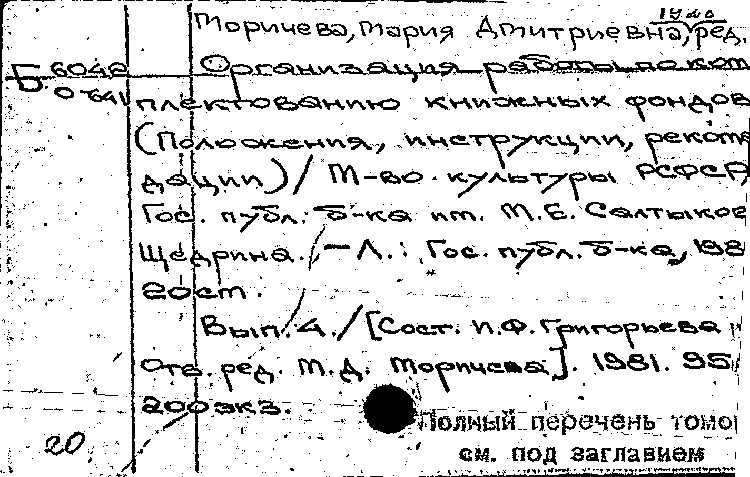 Торичева, Мария Дмитриевна, ред.
Б 6048
0-641
Организация работы по ком
плектованию книжных фондов
(Положения, инструкции, рекоме
дации) / М-во культуры РСФСР,
Гос. публ. б-ка им. М.Е. Салтыков
Щедрина. — Л.: Гос. публ. б-ка, 198
20 см.
Вып. 4. / [Сост. И.Ф. Григорьева
Отв. ред. М.Д. Торичева]. 1981. 95
200 экз.
Полный перечень томо
см. под заглавием
20